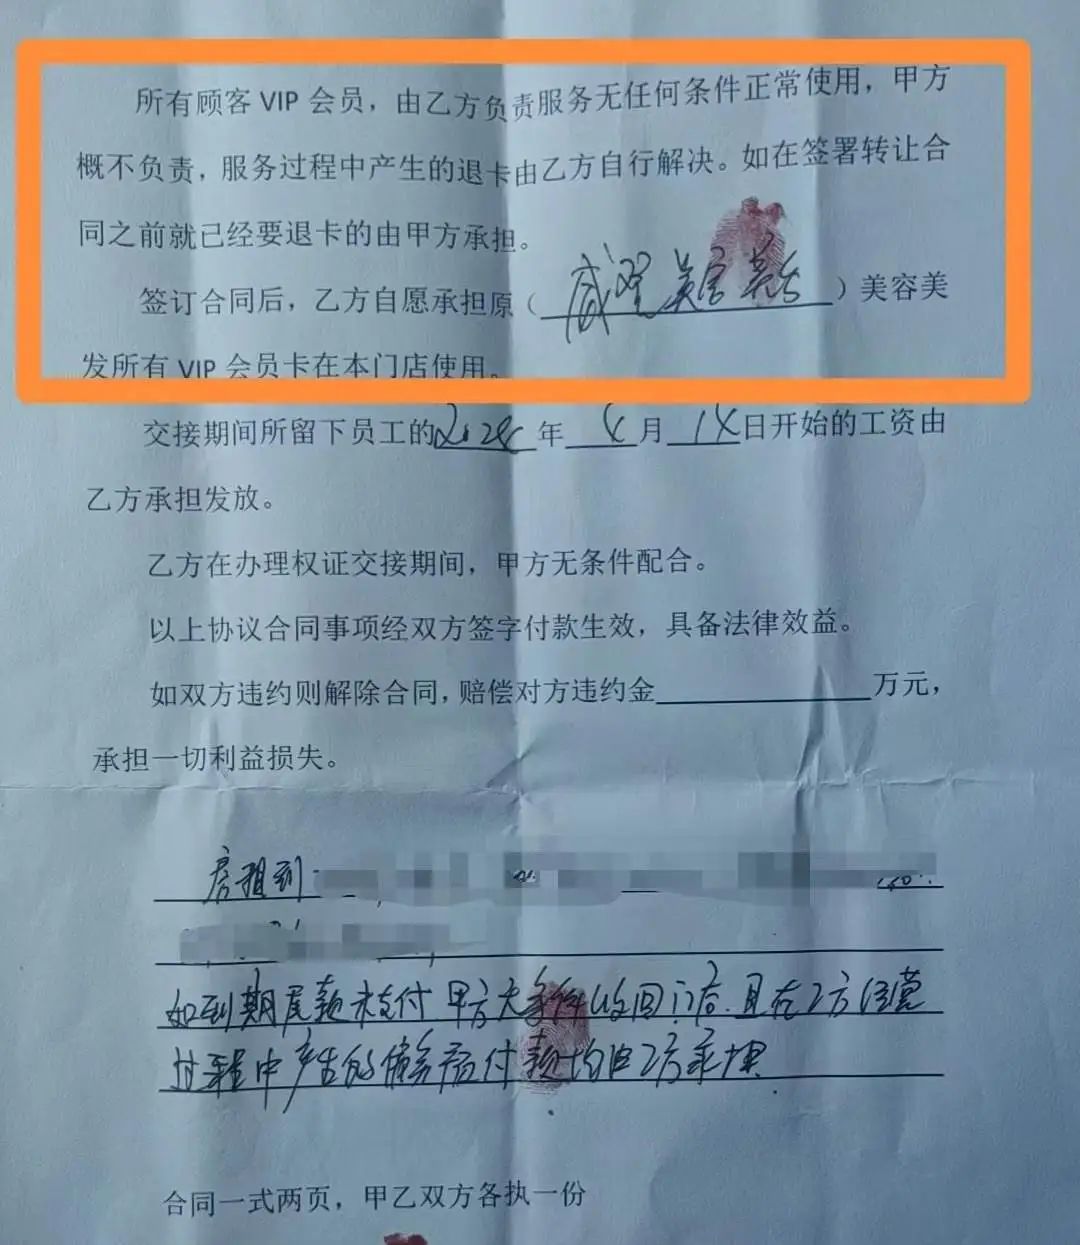 所有顾客 VIP 会员，由乙方负责服务无任何条件正常使用，甲方
概不负责，服务过程中产生的退卡由乙方自行解决。如在签署转让合
同之前就已经要退卡的由甲方承担。
签订合同后，乙方自愿承担原（）美容美
发所有 VIP 会员卡在本门店使用。
交接期间所留下员工的2024年4月14日开始的工资由
乙方承担发放。
乙方在办理权证交接期间，甲方无条件配合。
以上协议合同事项经双方签字付款生效，具备法律效益。
如双方违约则解除合同，赔偿对方违约金万元，
承担一切利益损失。
房租到
如到期尾款未支付 甲方无条件收回门店.且在乙方经营
过程中产生的债务应付款均由乙方承担.
合同一式两页，甲乙双方各执一份